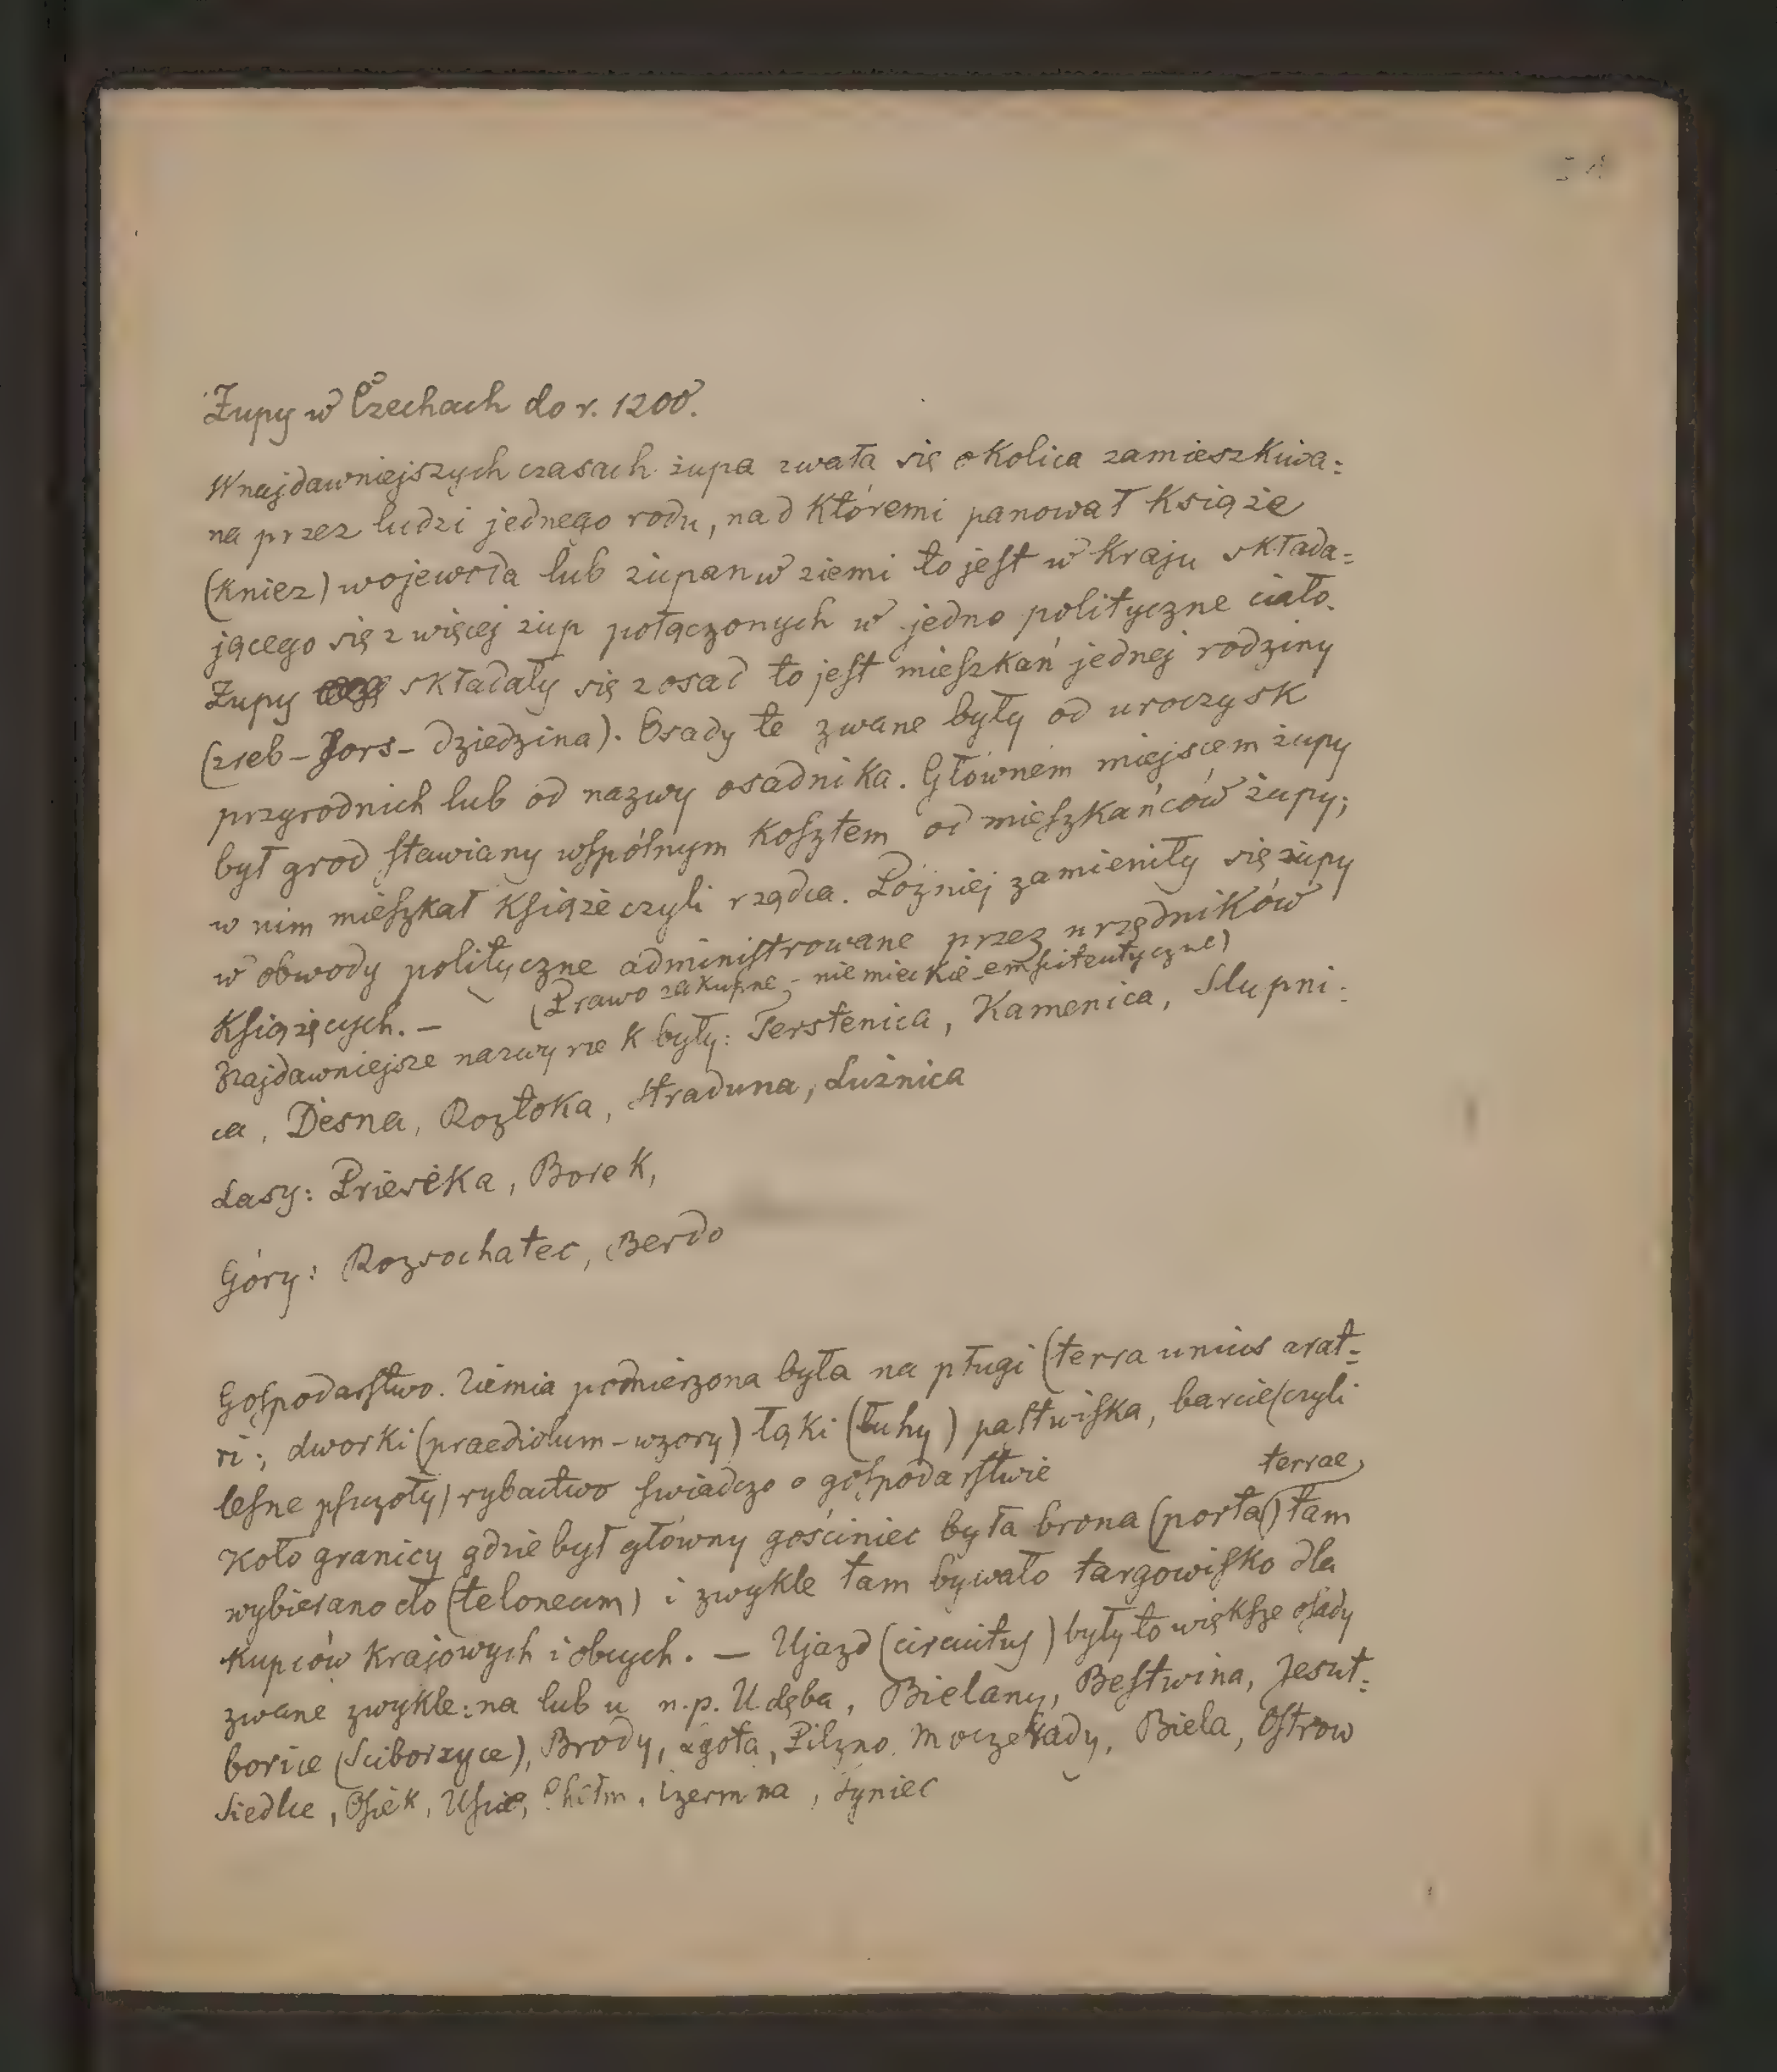 Żupy w Czechach do r. 1200.
W najdawniejszych czasach żupa zwała się okolica zamieszkiwa=
na przez ludzi jednego rodu, nad któremi panował Książe
(Kniez) wojewoda lub żupan w ziemi to jest w kraju składa=
jącego się z więcej żup połączonych w jedno polityczne ciało.
Żupy składały się z osad to jest mieszkań jednej rodziny
(zreb - Fors - dziedzina). Osady te zwane były od uroczysk
przyrodnich lub od nazwy osadnika. Głównem miejscem żupy
był grod stawiany wspólnym kosztem od mieszkańców żupy;
w nim mieszkał Książe czyli rządca. Poźniej zamieniły się żupy
w obwody polityczne administrowane przez urzędników
Książęcych. —
(Prawo zakupne, - niemieckie - emfiteutyczne)
Najdawniejsze nazwy rzek były: Terstenica, Kamenica, Slupni=
ca, Desna, Roztoka, Straduna, Lużnica
Lasy: Prieseka, Borek,
Góry: Rozsochatec, Berdo
Gospodarstwo. Ziemia pomierzona była na pługi (terra unius arat=
ri; dworki (praediolum - wzory) łąki (luhy) pastwiska, barcie (czyli
leśne pszczoły) rybactwo swiadczo o gospodarstwie
Koło granicy gdzie był główny gościniec była brona (porta terrae) tam
wybierano cło (teloneum) i zwykle tam bywało targowisko dla
kupców krajowych i obcych. — Ujazd (circuitus) były to większe osady
zwane zwykle: na lub u n.p. U dęba, Bielany, Bestwina, Jesut=
borice (Sciborzyce), Brody, Lgota, Pilzno, Moczerady, Biela, Ostrow
Siedlce, Osiek, Usice, Chełm, Czermna, Tyniec